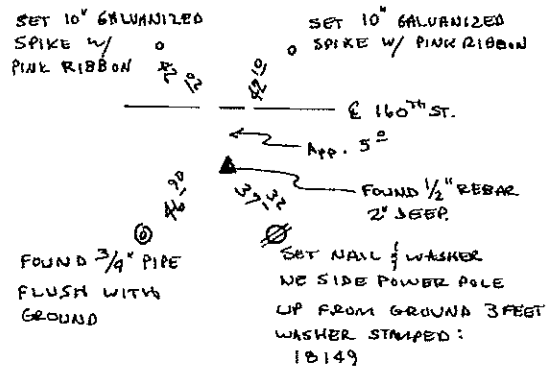 SET 10" GALVANIZED
SPIKE W/
PINK RIBBON
42 02
SET 10" GALVANIZED
SPIKE W/ PINK RIBBON
42 10
℄ 160TH ST.
APP. 5 0
FOUND 1/2" REBAR
2" DEEP.
46 90
37 32
FOUND 3/4" PIPE
FLUSH WITH
GROUND
SET NAIL & WASHER
NE SIDE POWER POLE
UP FROM GROUND 3 FEET
WASHER STAMPED:
18149